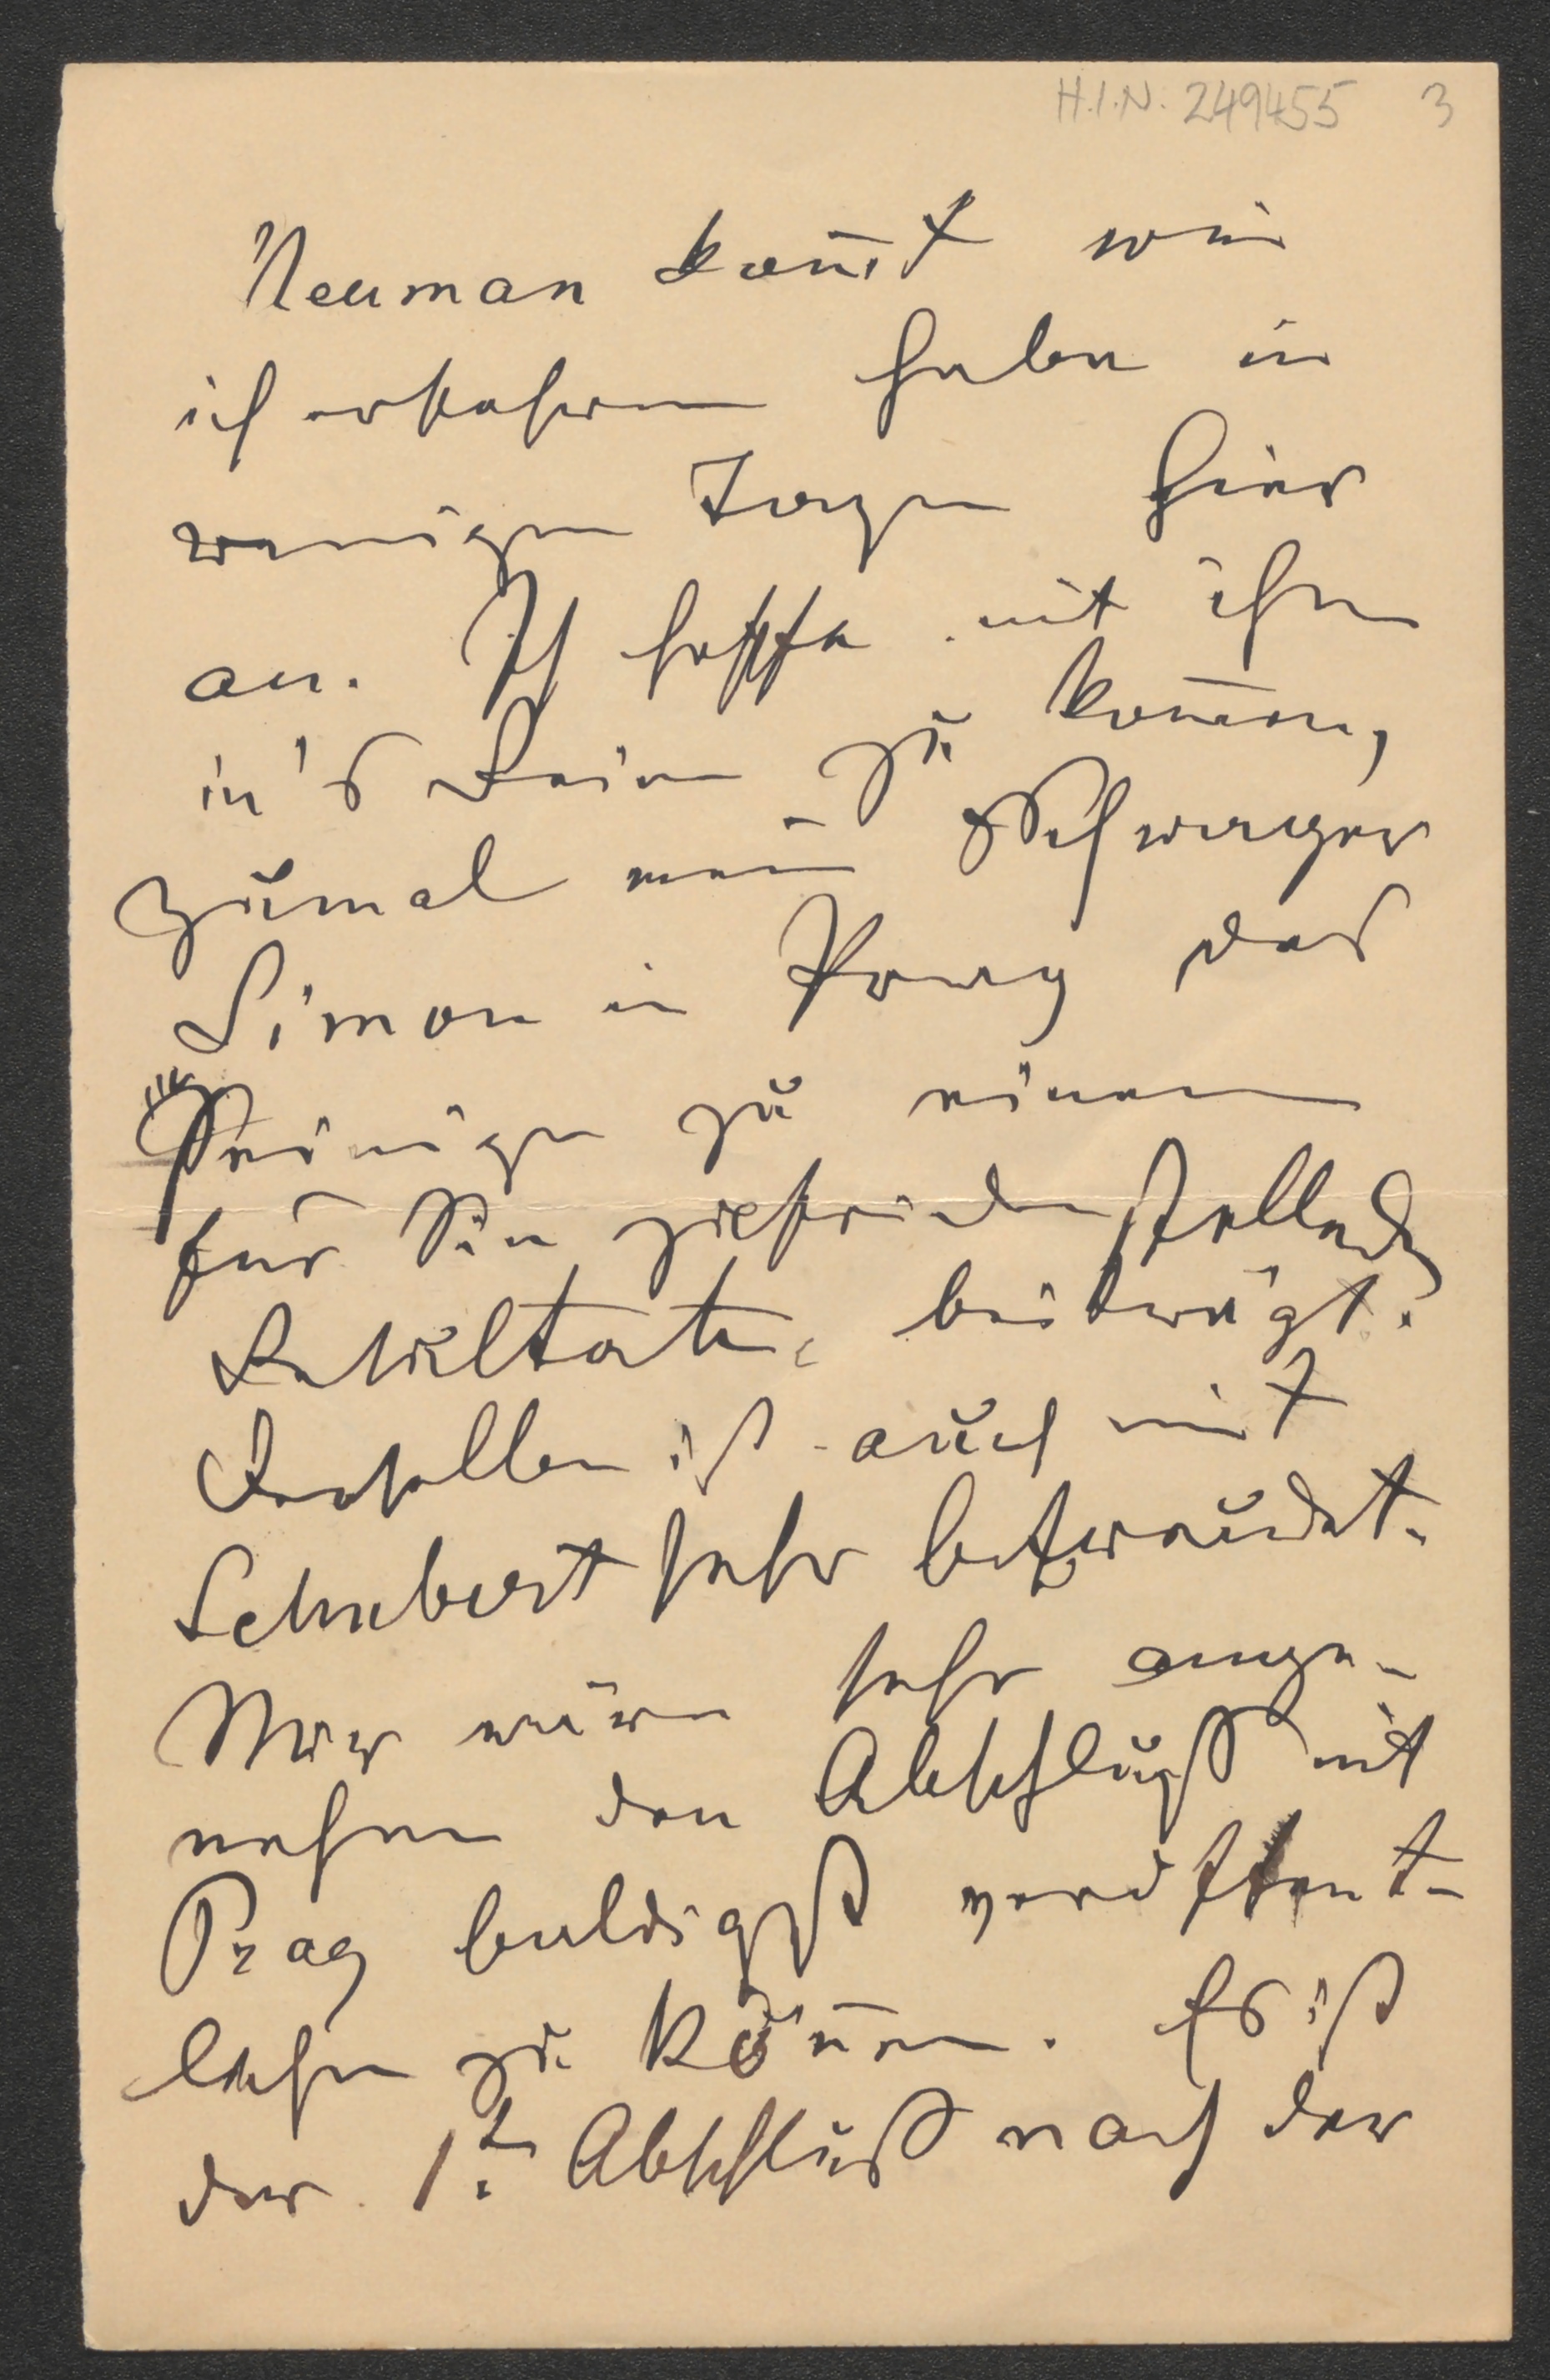 H.I.N. 249455 3
Neuman kom̅t wie
ich erfahren habe in
wenigen Tagen hier
an. Ich hoffe mit ihm
in's Reine zu kom̅en,
zumal mein Schwager
Simon in Prag das
Seinige zu einem
für Sie zufriedenstellenden
Resultate beiträgt.
Derselbe ist auch mit
Schubert sehr befreundet.
Mir wäre sehr ange-
nehm den Abschluß mit
Prag baldigst veröffent-
lichen zu kön̅en. Es ist
der 1te Abschluß nach der